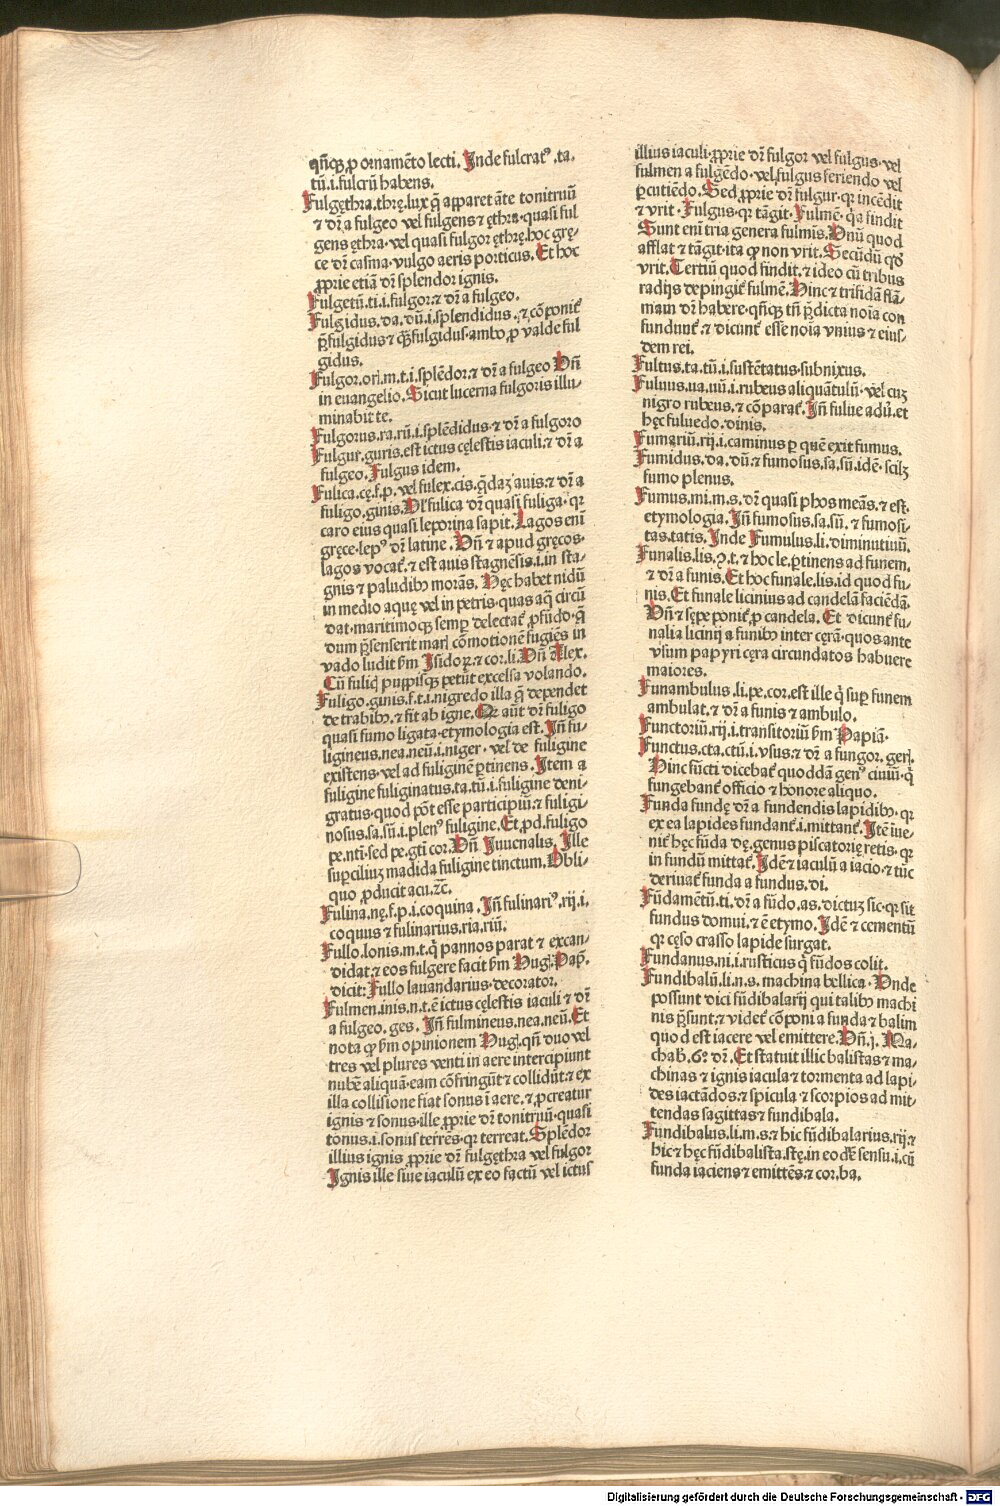 qñq̃ꝫ ꝓ ornamẽto lecti. Inde fulcratꝰ.ta.
tũ.i.fulcrũ habens.
Fulgęthra.thrę.lux q̃ apparet ãte tonitruũ
⁊ dr̃ a fulgeo vel fulgens ⁊ ęthra.quasi ful
gens ęthra.vel quasi fulgor ęthrę.hoc grę-
ce dr̃ casma.vulgo aeris porticus. Et hoc
ꝓprie etiã dr̃ splendor ignis.
Fulgetũ.ti.i.fulgor.⁊ dr̃ a fulgeo.
Fulgidus.da.dũ.i.splendidus.⁊ cõponit᷑
p̃fulgidus ⁊ q̃ꝫfulgidus.ambo ꝓ valde ful
gidus.
Fulgor.oris.m.t.i.splẽdor.⁊ dr̃ a fulgeo Vñ
in euangelio. Sicut lucerna fulgoris illu-
minabit te.
Fulgorus.ra.rũ.i.splẽdidus.⁊ dr̃ a fulgoro
Fulgur.guris.est ictus cęlestis iaculi.⁊ dr̃ a
fulgeo. Fulgus idem.
Fulica.cę.f.p. vel fulex.cis.q̃daꝫ auis.⁊ dr̃ a
fuligo.ginis. Vel fulica dr̃ quasi fuliga.qꝛ
caro eius quasi leporina sapit. Lagos eni
gręce.lepꝰ dr̃ latine. Vñ ⁊ apud gręcos.
lagos vocat᷑.⁊ est auis stagnẽsis.i.in sta-
gnis ⁊ paludibꝰ morãs. Hęc habet nidũ
in medio aquę vel in petris.quas aq̃ circũ
dat.maritimoqꝫ semꝑ delectat᷑ ꝓfũdo.q̃
dum p̃senserit maris cõmotionẽ fugiẽs in
vado ludit ẜm Isidoꝝ.⁊ cor.li. Vñ Alex.
Cũ fulicis puppisqꝫ petũt excelsa volando.
Fuligo.ginis.f.t.i.nigredo illa q̃ dependet
de trabibꝰ.⁊ fit ab igne. Qꝛ aũt dr̃ fuligo
quasi fumo ligata.etymologia est. Iñ fu-
ligineus.nea.neũ.i.niger.vel de fuligine
existens.vel ad fuliginẽ ꝑtinens. Item a
fuligine fuliginatus.ta.tũ.i.fuligine deni-
gratus.quod põt esse participiũ.⁊ fuligi-
nosus.sa.sũ.i.plenꝰ fuligine. Et.ꝓd.fuligo
pe.nti.sed pe.gti cor. Vñ Iuuenalis. Ille
suꝑciliuꝫ madida fuligine tinctum. Obli-
quo ꝓducit acu.⁊c̃.
Fulina.nę.f.p.i.coquina. Iñ fulinariꝰ.rij.i.
coquus ⁊ fulinarius.ria.riũ.
Fullo.lonis.m.t.q̇ pannos parat ⁊ excan-
didat.⁊ eos fulgere facit ẜm Hug. Pap̃.
dicit: Fullo lauandarius.decorator.
Fulmen.inis.n.t.ẽ ictus cęlestis iaculi ⁊ dr̃
a fulgeo.ges. Iñ fulmineus.nea.neũ. Et
nota ꝙ ẜm opinionem Hug.qñ duo vel
tres vel plures venti in aere intercipiunt
nubẽ aliquã.eam cõfringũt ⁊ collidũt.⁊ ex
illa collisione fiat sonus ĩ aere.⁊ ꝓcreatur
ignis ⁊ sonus.ille ꝓprie dr̃ tonitruũ.quasi
tonus.i.sonus terrẽs.qꝛ terreat. Splẽdor
illius ignis ꝓprie dr̃ fulgęthra vel fulgor
Ignis ille siue iaculũ ex eo factũ vel ictus
illius iaculi.ꝓprie dr̃ fulgor vel fulgus.vel
fulmen a fulgẽdo.vel fulgus feriendo vel
ꝑcutiẽdo. Sed ꝓprie dr̃ fulgur.qꝛ incẽdit
⁊ vrit. Fulgus.qꝛ tãgit. Fulmẽ.q̃a findit
Sunt enĩ tria genera fulmis. Vnũ quod
afflat ⁊ tãgit.ita ꝙ non vrit. Secũdũ qd̃
vrit. Tertiũ quod findit.⁊ ideo cũ tribus
radijs depingit᷑ fulmẽ. Hinc ⁊ trifidã flã-
mam dr̃ habere.qñqꝫ tñ p̃dicta noĩa con
fundunt᷑.⁊ dicunt᷑ esse noĩa vnius ⁊ eius-
dem rei.
Fultus.ta.tũ.i.sustẽtatus.subnixus.
Fuluus.ua.uũ.i.rubeus aliquãtulũ.vel cuꝫ
nigro rubeus.⁊ cõparat᷑. Iñ fulue aduͥ.et
hęc fuluedo.dinis.
Fumariũ.rij.i.caminus ꝑ quẽ exit fumus.
Fumidus.da.dũ.⁊ fumosus.sa.sũ.idẽ.scilꝫ
fumo plenus.
Fumus.mi.m.s.dr̃ quasi phos meãs.⁊ est
etymologia. Iñ fumosus.sa.sũ.⁊ fumosi-
tas.tatis. Inde Fumulus.li.diminutiuũ.
Funalis.lis.ꝯ.t.⁊ hoc le.ꝑtinens ad funem.
⁊ dr̃ a funis. Et hoc funale.lis.id quod fu-
nis. Et funale licinius ad candelã faciẽdã.
Vñ ⁊ sępe ponit᷑ ꝓ candela. Et dicunt᷑ fu-
nalia licinij a funibꝰ inter cerã.quos ante
vsum papyri cęra circundatos habuere
maiores.
Funambulus.li.pe.cor.est ille q̇ suꝑ funem
ambulat.⁊ dr̃ a funis ⁊ ambulo.
Functoriũ.rij.i.transitoriũ ẜm Papiã.
Functus.cta.ctũ.i.vsus.⁊ dr̃ a fungor.geris.
Hinc fũcti dicebãt᷑ quoddã genꝰ ciuiũ.q̇
fungebant᷑ officio ⁊ honore aliquo.
Funda fundę dr̃ a fundendis lapidibꝰ.qꝛ
ex ea lapides fundant᷑.i.mittant᷑. Itẽ iue-
nit᷑ hęc fũda dę.genus piscatorię retis.qꝛ
in fundũ mittat᷑. Idẽ ⁊ iaculũ a iacio.⁊ tũc
deriuat᷑ funda a fundus.di.
Fũdamẽtũ.ti.dr̃ a fũdo.as.dictuꝫ sic.qꝛ sit
fundus domui.⁊ ẽ etymo. Idẽ ⁊ cementũ
qꝛ cęso crasso lapide surgat.
Fundanus.ni.i.rusticus q̇ fũdos colit.
Fundibalũ.li.n.s.machina bellica. Vnde
possunt dici fũdibalarij qui talibꝰ machi
nis p̃sunt.⁊ videt᷑ cõponi a funda ⁊ balim
quod est iacere vel emittere. Vñ.j. Ma-
chab̃.6º dr̃. Et statuit illic balistas ⁊ ma-
chinas ⁊ ignis iacula ⁊ tormenta ad lapi-
des iactãdos.⁊ spicula ⁊ scorpios ad mit-
tendas sagittas ⁊ fundibala.
Fundibalus.li.m.s.⁊ hic fũdibalarius.rij.⁊
hic ⁊ hęc fũdibalista.stę.in eodẽ sensu.i.cũ
funda iaciens ⁊ emittẽs.⁊ cor.ba.
Digitalisierung gefördert durch die Deutsche Forschungsgemeinschaft - DFG